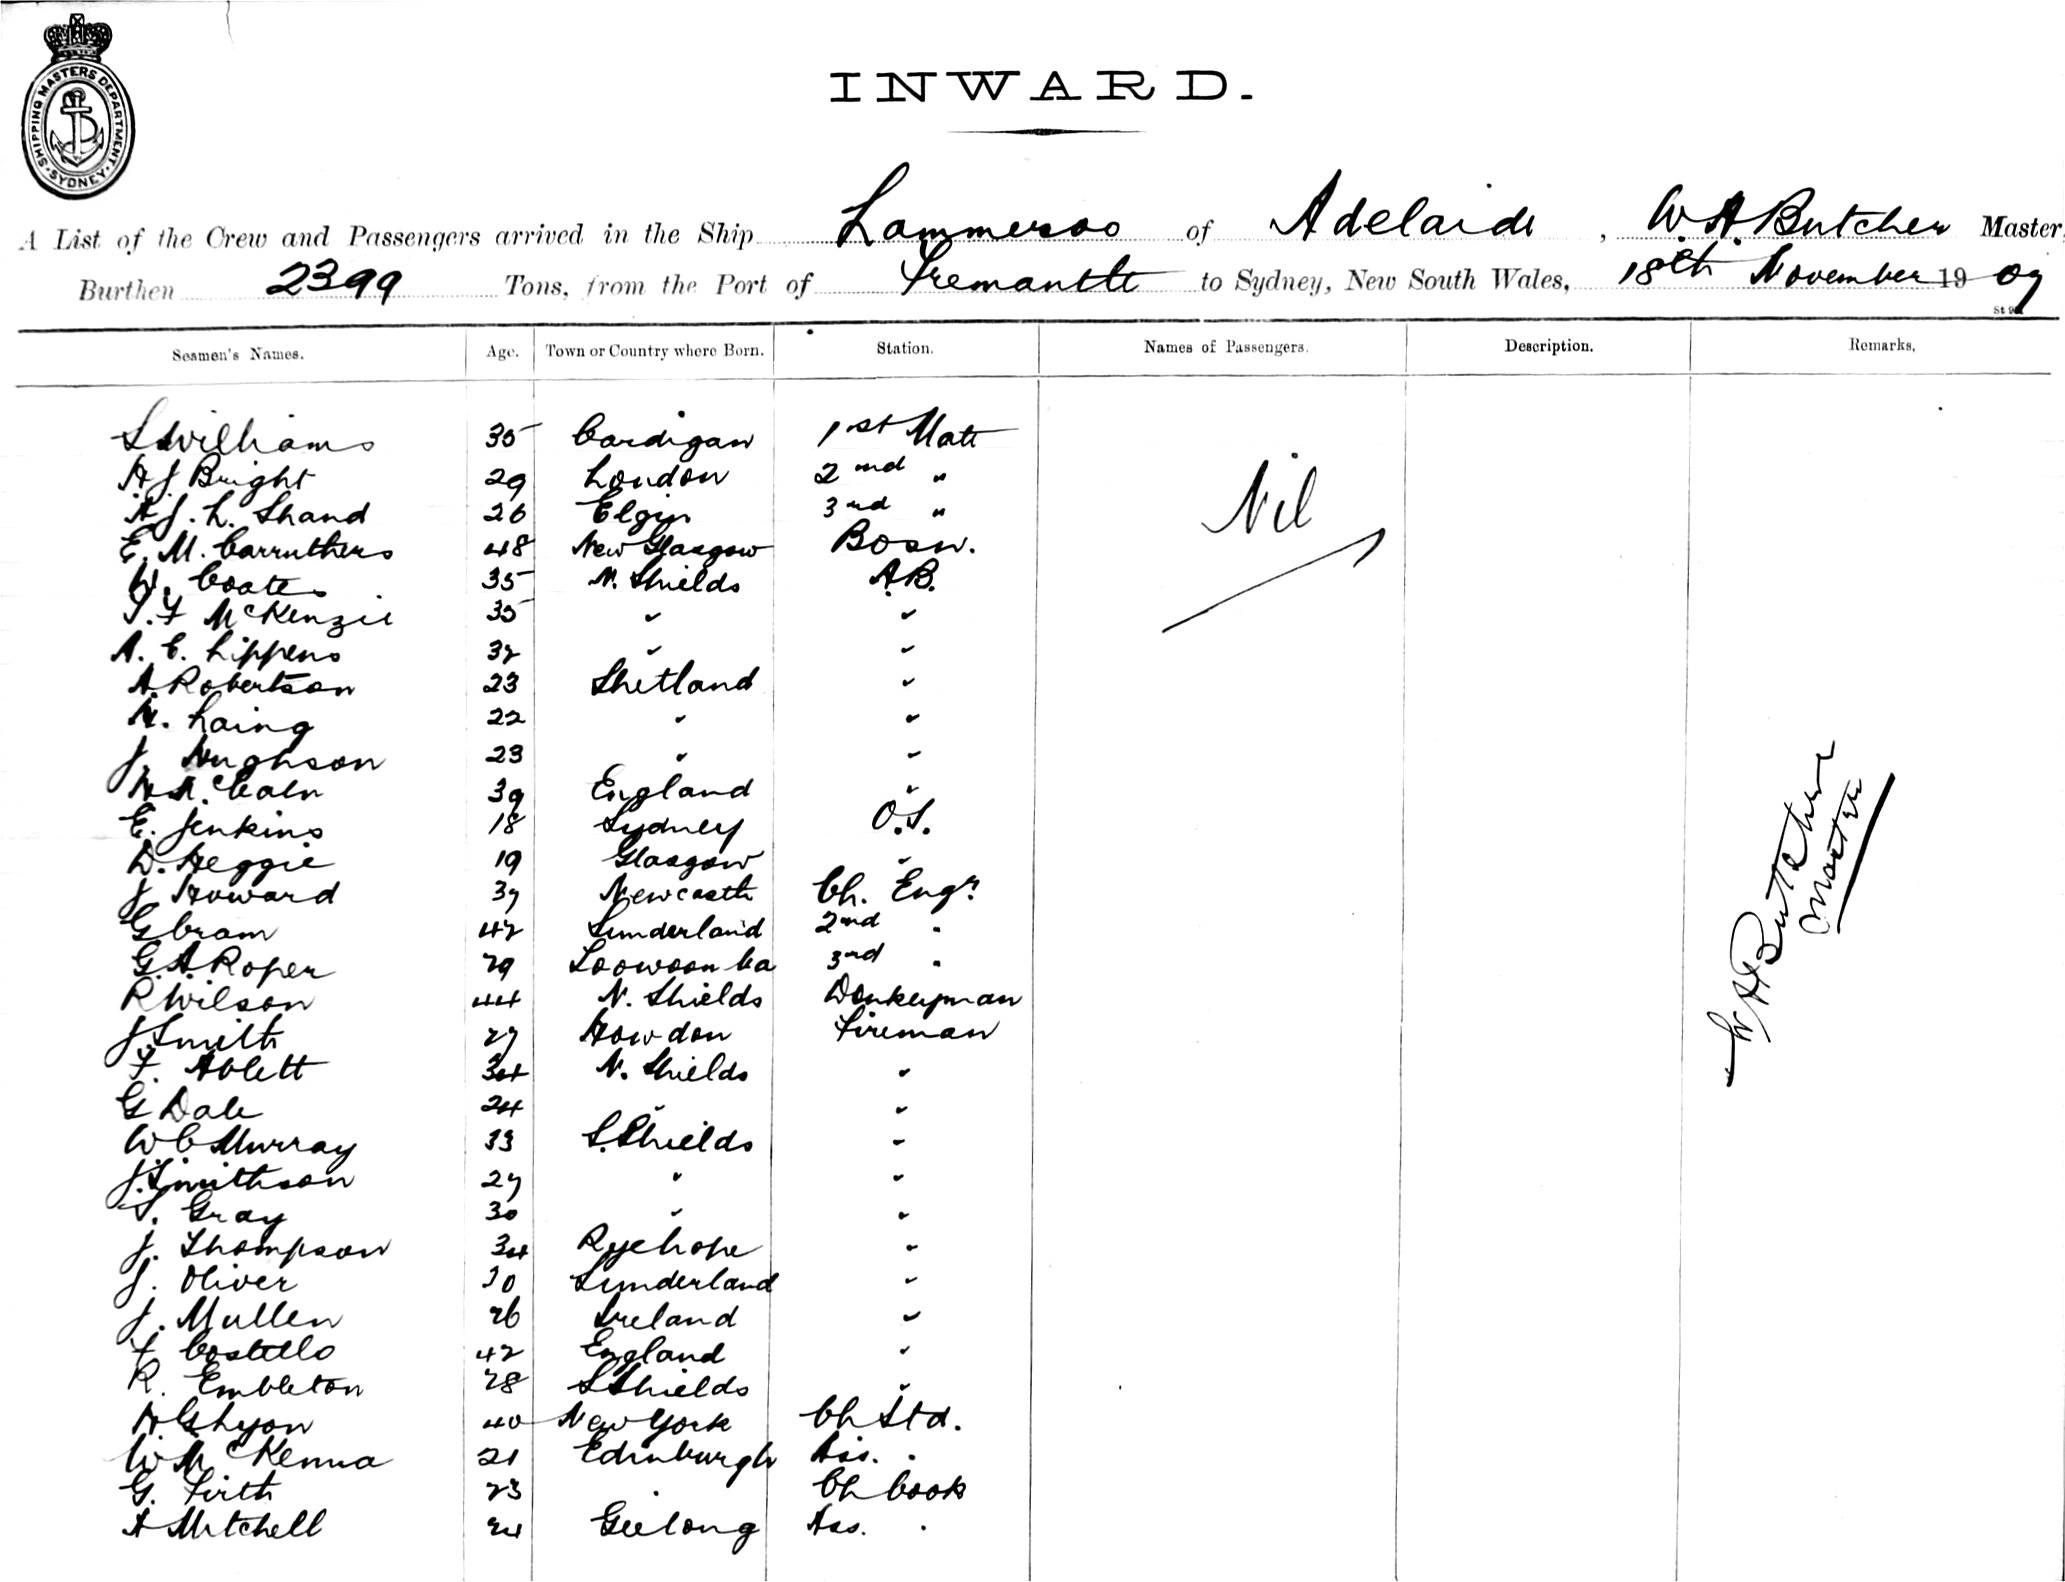 SHIPPING MASTERS DEPARTMENT
SYDNEY
INWARD.
A List of the Crew and Passengers arrived in the Ship Lammeroo of Adelaide, W. A. Butcher Master,
Burthen 2399 Tons, from the Port of Fremantle to Sydney, New South Wales, 18th November 1907
Seamen's Names. Age. Town or Country where Born. Station. Names of Passengers. Description. Remarks.
S Williams 35 Cardigan 1st Mate
A J Bright 29 London 2nd "
A. J. L. Shand 26 Elgin 3rd "
Nil
E. M. Carruthers 48 New Glasgow Bosn.
W. Coates 35 N. Shields A.B.
T. F McKenzie 35 " "
A. E. Lippens 32 " "
A. Robertson 23 Shetland "
W. Laing 22 " "
J. Hughson 23 " "
England 39 "
E. Jenkins 18 Sydney O.S.
D. Heggie 19 Glasgow "
J Howard 37 Newcastle Ch. Engr.
G Cram 42 Sunderland 2nd "
G. A. Roper 29 Toowoomba 3rd "
R Wilson 44 N. Shields Donkeyman
J. Smith 27 Howdon Fireman
F. Ablett 34 N. Shields "
G Dale 24 " "
W. C Murray 33 S. Shields "
J. Smithson 27 " "
T. Gray 30 " "
J. Thompson 34 Ryehope "
J. Oliver 30 Sunderland "
J. Mullen 26 Ireland "
F Costello 42 England "
R. Embleton 28 S Shields "
40 New York Ch Std.
W McKenna 21 Edinburgh Ass. "
G. Firth 23 " Ch Cook
A Mitchell 24 Geelong Ass. "
W A Butcher
Master